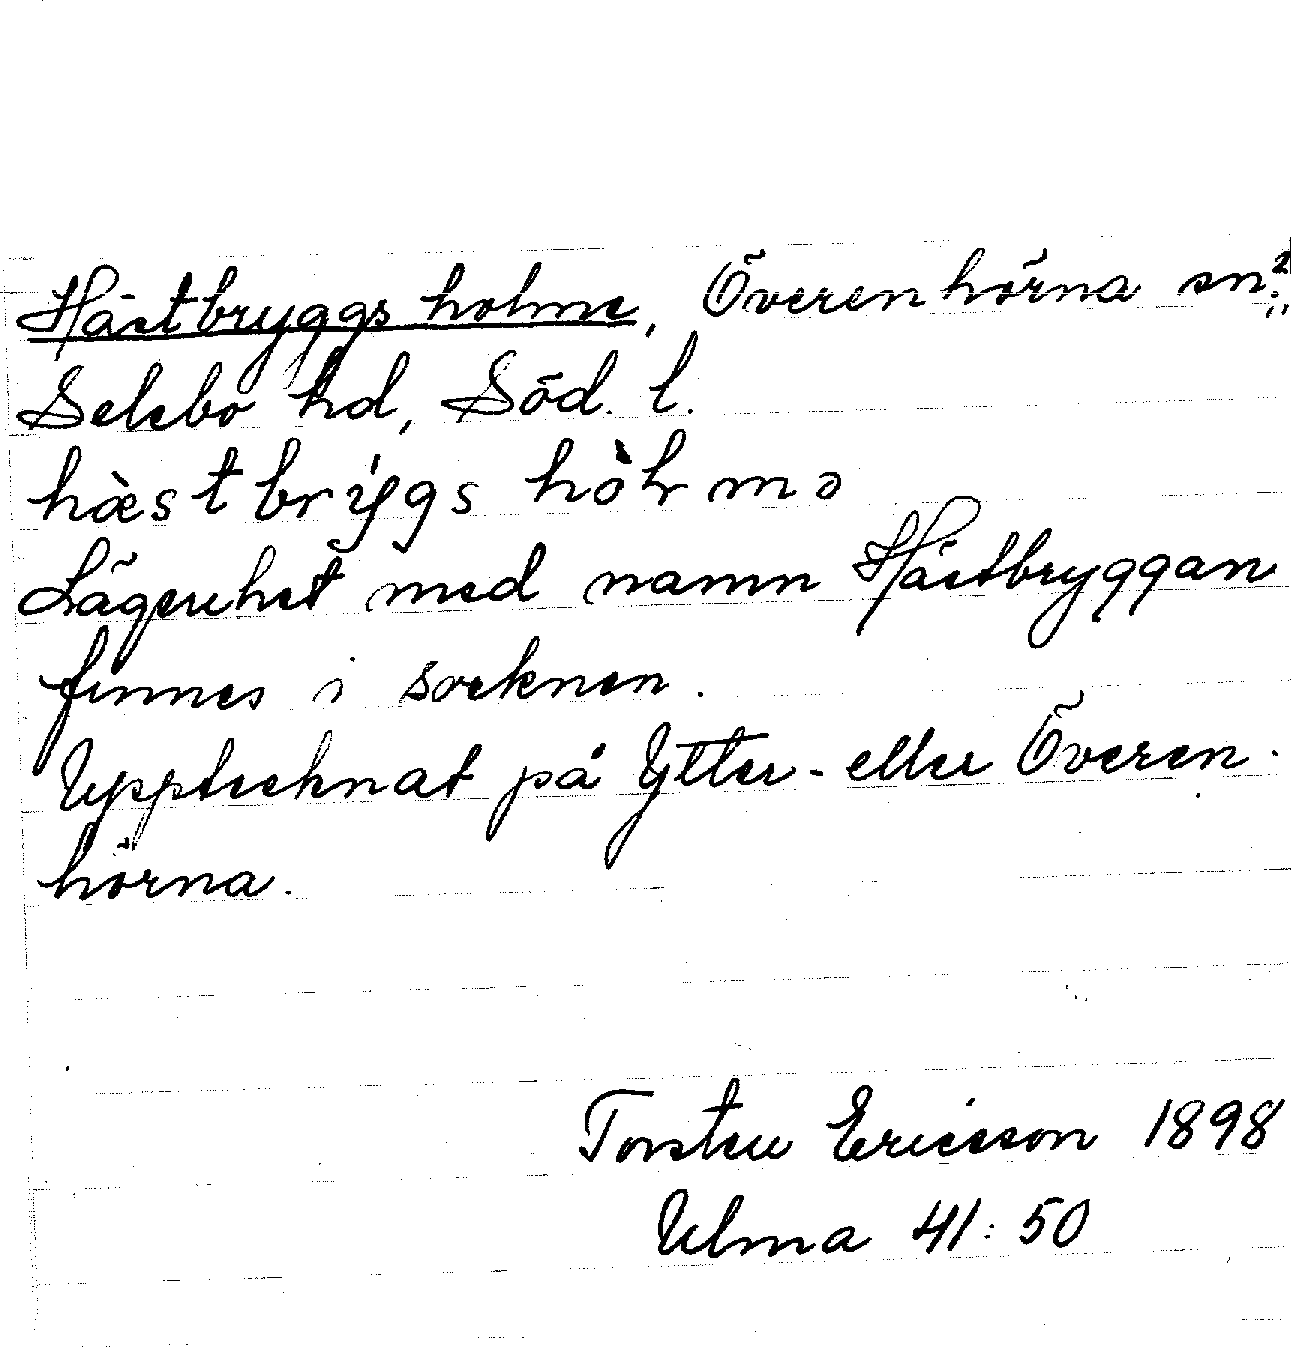 Hästbryggs holme, Överenhörna sn?,
Selebo hd, Söd. l.
hæ̀stbrýgs hòlmə
Lägenhet med namn Hästbryggan
finnes i socknen.
Upptecknat på Ytter- eller Överen-
hörna.
Torsten Ericsson 1898
Ulma 41:50